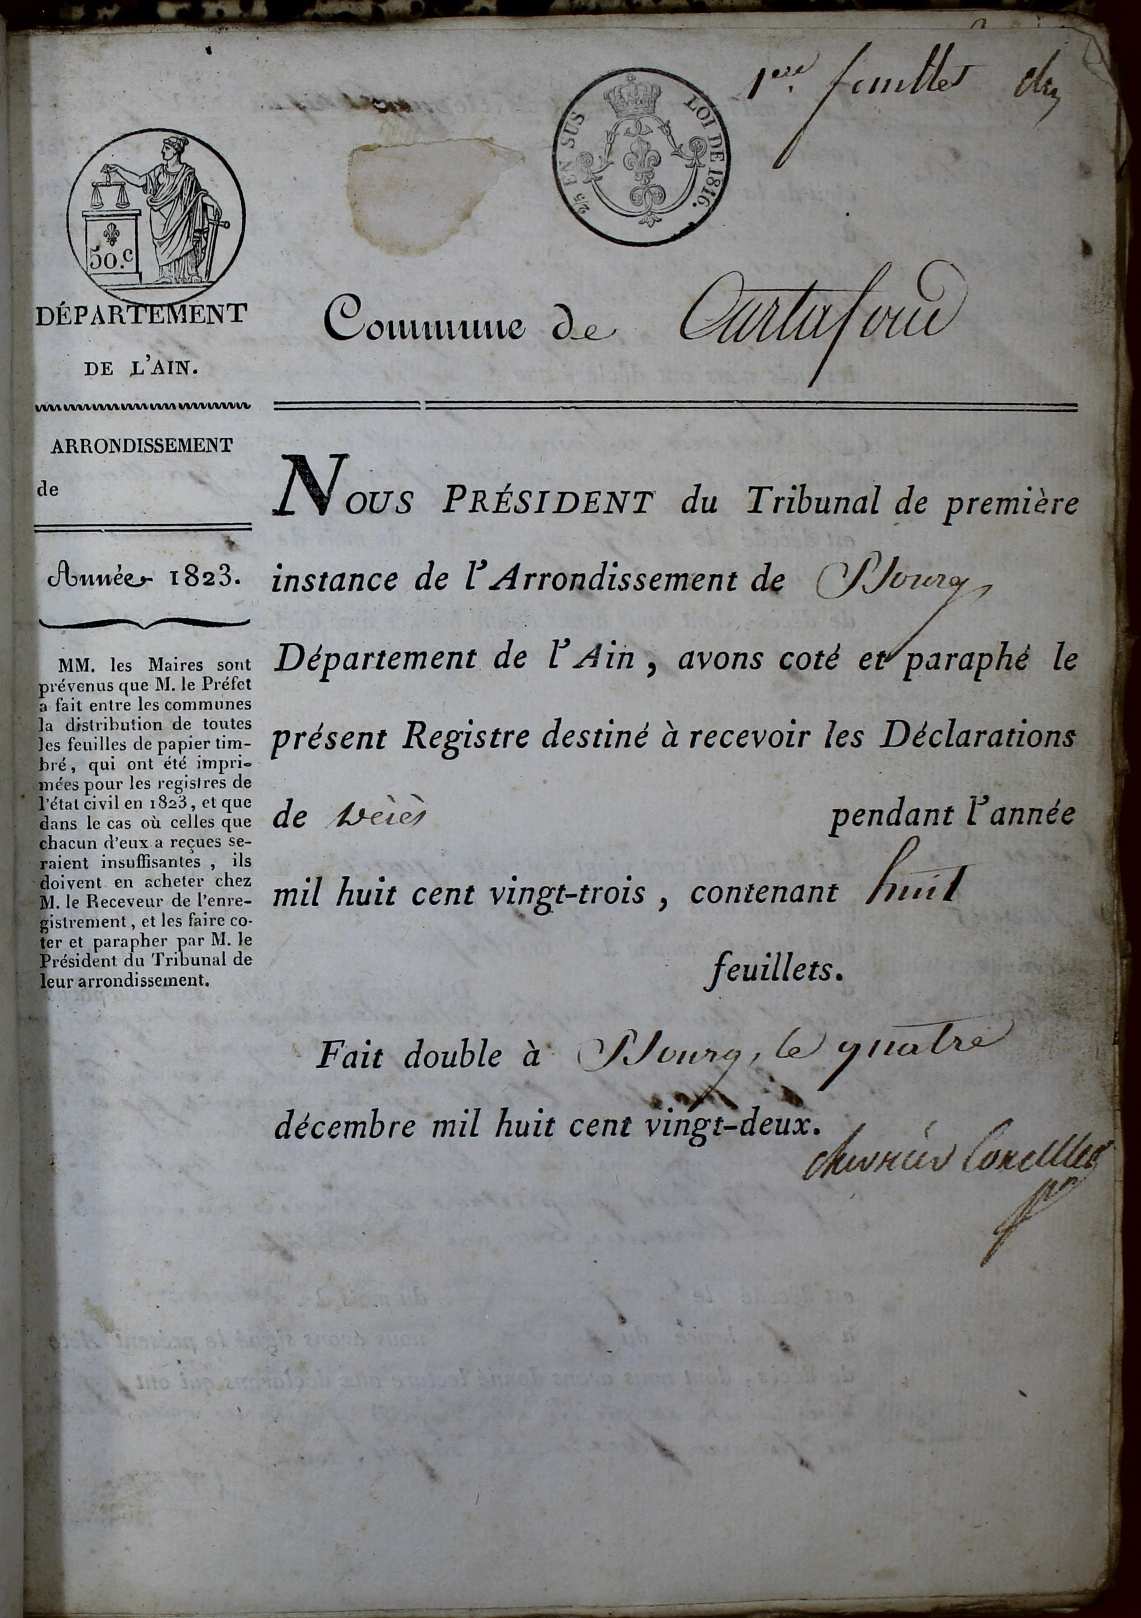 1ere feuillet
2/5 EN SUS
LOI DE 1816.
50.c
DÉPARTEMENT
DE L'AIN.
Commune de Curtafond
ARRONDISSEMENT
de
Année 1823.
MM. les Maires sont
prévenus que M. le Préfet
a fait entre les communes
la distribution de toutes
les feuilles de papier tim-
bré, qui ont été impri-
mées pour les registres de
l'état civil en 1823, et que
dans le cas où celles que
chacun d'eux a reçues se-
raient insuffisantes, ils
doivent en acheter chez
M. le Receveur de l'enre-
gistrement, et les faire co-
ter et parapher par M. le
Président du Tribunal de
leur arrondissement.
NOUS PRÉSIDENT du Tribunal de première
instance de l'Arrondissement de Bourg
Département de l'Ain, avons coté et paraphé le
présent Registre destiné à recevoir les Déclarations
de Décès pendant l'année
mil huit cent vingt-trois, contenant huit
feuillets.
Fait double à Bourg, le quatre
décembre mil huit cent vingt-deux.
chevrier Corcelles